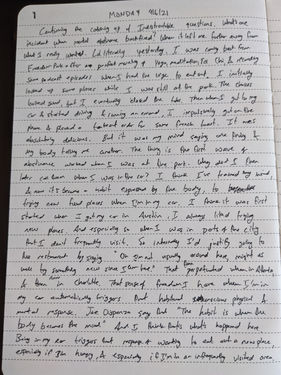 1
MONDAY 4/6/21
Continuing the coloring of Indestructible questions. What's one
incident when mobile distraction transferred? When it led me further away from
what I really wanted. Literally yesterday. I was coming back from
Park after an perfect morning of Yoga, meditation, Tai Chi, & attending
some podcast episodes. When I had the urge to eat out, I initially
looked up some places while I was still at the park. The
looked good, but I eventually closed the tabs. Then when I got to my
car & started driving & running an errand, I impulsively got on the
phone & placed a takeout order for some french toast. It was
absolutely delicious. But it was my mind saying one thing &
my body telling me another. The thing is the first wave of
abstinence worked when I was at the park. Why did I then
later on when I was in the car? I think I've trained my mind,
& now it's become a habit expressed by the body, to
trying new food places when I'm in my car. I think it was first
started when I got my car in Austin, I always liked trying
new places. And especially so when I was in parts of the city
that I don't frequently visit. So internally I'd justify going to
the restaurant by saying "Oh I'm not usually around here, might as
well try something new since I am here." That perpetuated when in Atlanta,
& then in Charlotte. That sense of freedom I have when I'm in
my car automatically triggers that habitual subconscious physical &
mental response. Joe Dispenza says that "The habit is when the
body becomes the mind." And I think that's what's happened here.
Being in my car triggers that response of wanting to eat out a new place,
especially if I'm hungry, & especially if I'm in an infrequently visited area.